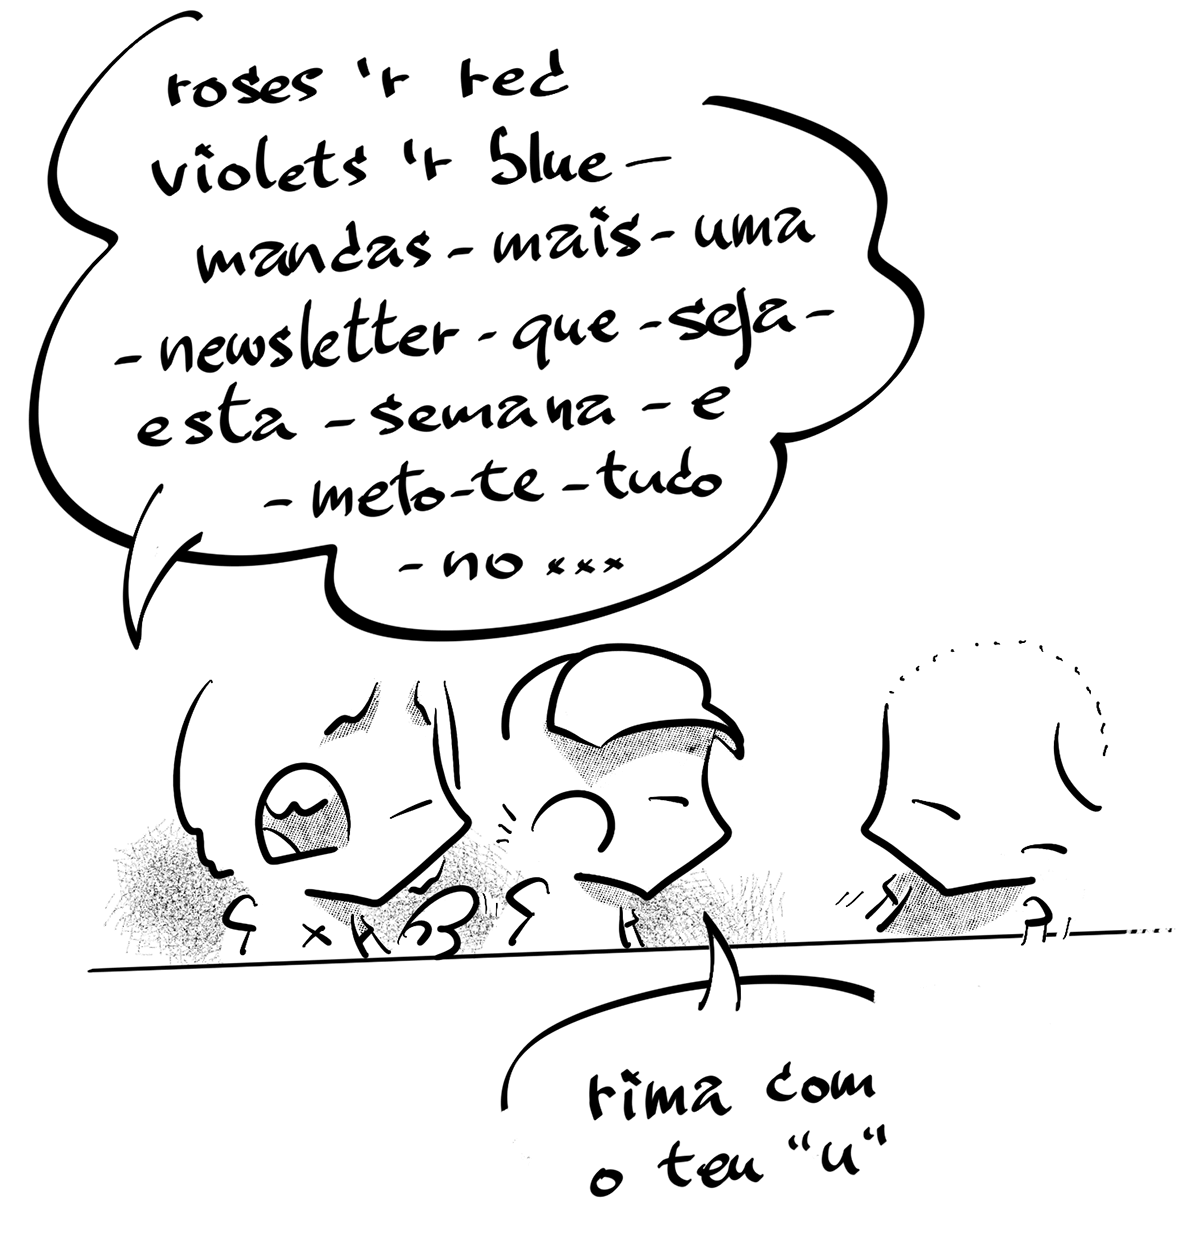 roses 'r red
violets 'r blue –
mandas - mais - uma
- newsletter - que - seja -
esta - semana - e
- meto-te - tudo
- no ×××
rima com
o teu "u"